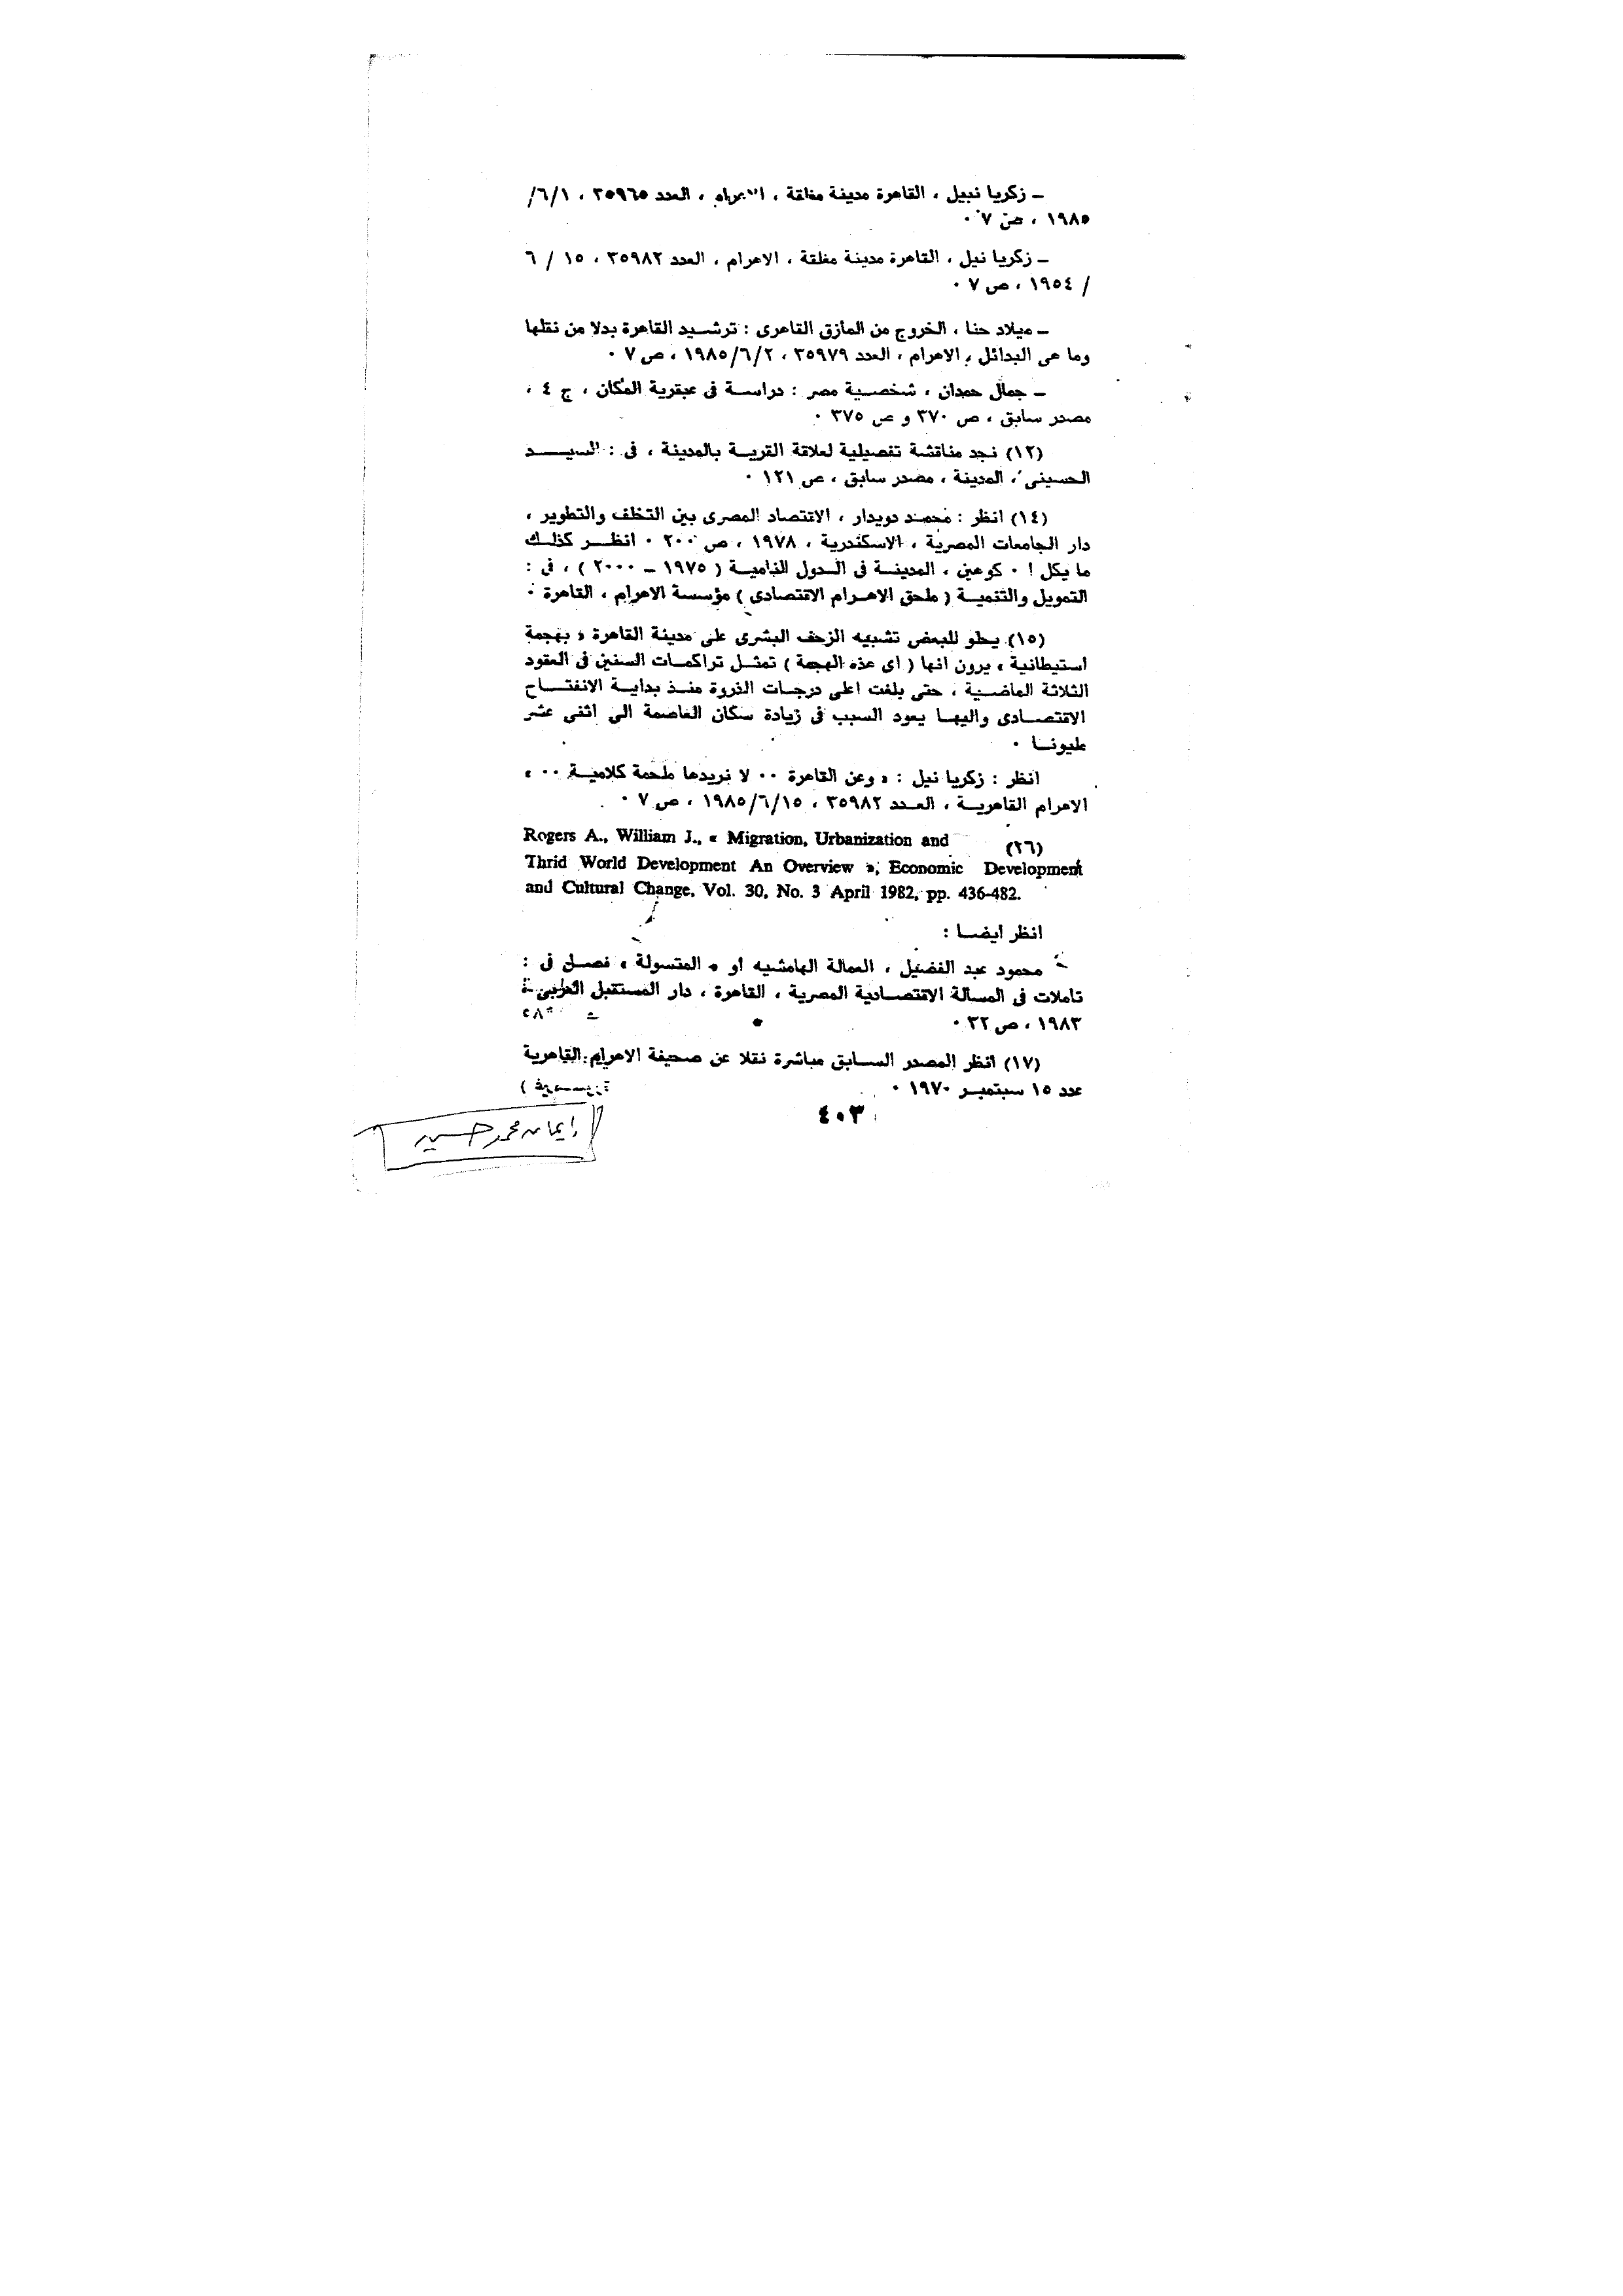 – زكريا نبيل ، القاهرة مدينة مغلقة ، الاهرام ، العدد ٣٥٩٦٥ ، ٦/١/
١٩٨٥ ، ص ٧ ٠
– زكريا نيل ، القاهرة مدينة مغلقة ، الاهرام ، العدد ٣٥٩٨٢ ، ١٥ / ٦
/ ١٩٥٤ ، ص ٧ ٠
– ميلاد حنا ، الخروج من المأزق القاهرى : ترشيد القاهرة بدلا من نقلها
وما هى البدائل ، الاهرام ، العدد ٣٥٩٧٩ ، ١٩٨٥/٦/٢ ، ص ٧ ٠
– جمال حمدان ، شخصية مصر : دراسة فى عبقرية المكان ، ج ٤ ،
مصدر سابق ، ص ٣٧٠ و ص ٣٧٥ ٠
(١٢) نجد مناقشة تفصيلية لعلاقة القرية بالمدينة ، فى : السيد
الحسينى ، المدينة ، مصدر سابق ، ص ١٢١ ٠
(١٤) انظر : محمد دويدار ، الاقتصاد المصرى بين التخلف والتطوير ،
دار الجامعات المصرية ، الاسكندرية ، ١٩٧٨ ، ص ٢٠٠ ٠ انظر كذلك
مايكل ا ٠ كوهين ، المدينة فى الدول النامية ( ١٩٧٥ – ٢٠٠٠ ) ، فى :
التمويل والتنمية ( ملحق الاهرام الاقتصادى ) مؤسسة الاهرام ، القاهرة ٠
(١٥) يحلو للبعض تشبيه الزحف البشرى على مدينة القاهرة « بهجمة
استيطانية ، يرون انها ( اى هذه الهجمة ) تمثل تراكمات السنين فى العقود
الثلاثة الماضية ، حتى بلغت اعلى درجات الذروة منذ بداية الانفتاح
الاقتصادى واليها يعود السبب فى زيادة سكان العاصمة الى اثنى عشر
مليونا ٠
انظر : زكريا نيل : « وعن القاهرة ٠٠ لا نريدها ملحمة كلامية ٠٠ »
الاهرام القاهرية ، العدد ٣٥٩٨٢ ، ١٩٨٥/٦/١٥ ، ص ٧ ٠
(٢٦) Rogers A., William J., « Migration, Urbanization and
Thrid World Development An Overview », Economic Development
and Cultural Change, Vol. 30, No. 3 April 1982, pp. 436-482.
انظر ايضا :
محمود عبد الفضيل ، العمالة الهامشيه او « المتسولة » فصل فى :
تاملات فى المسالة الاقتصادية المصرية ، القاهرة ، دار المستقبل العربى
١٩٨٣ ، ص ٣٢ ٠
(١٧) انظر المصدر السابق مباشرة نقلا عن صحيفة الاهرام القاهرية
عدد ١٥ سبتمبر ١٩٧٠ ٠
٤٠٣
إيمان محمد حسين